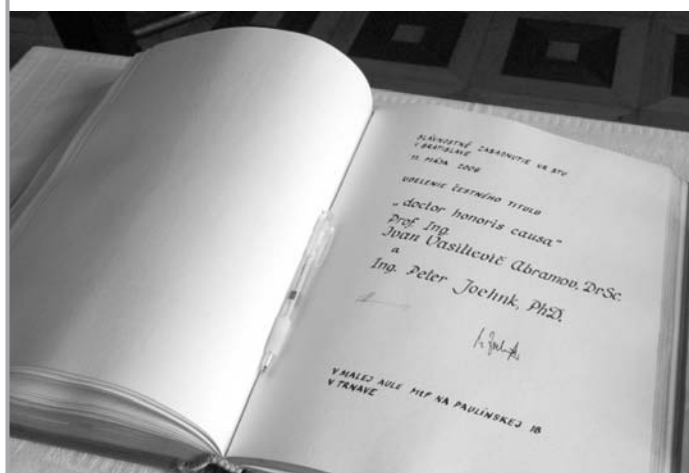 SLÁVNOSTNÉ ZASADNUTIE VR STU
V BRATISLAVE
11. MÁJA 2006
UDELENIE ČESTNÉHO TITULU
„doctor honoris causa“
Prof. Ing.
Ivan Vasilievič Abramov, DrSc.
a
Ing. Peter Jochnk, PhD.
V MALEJ AULE MTF NA PAULÍNSKEJ 16
V TRNAVE